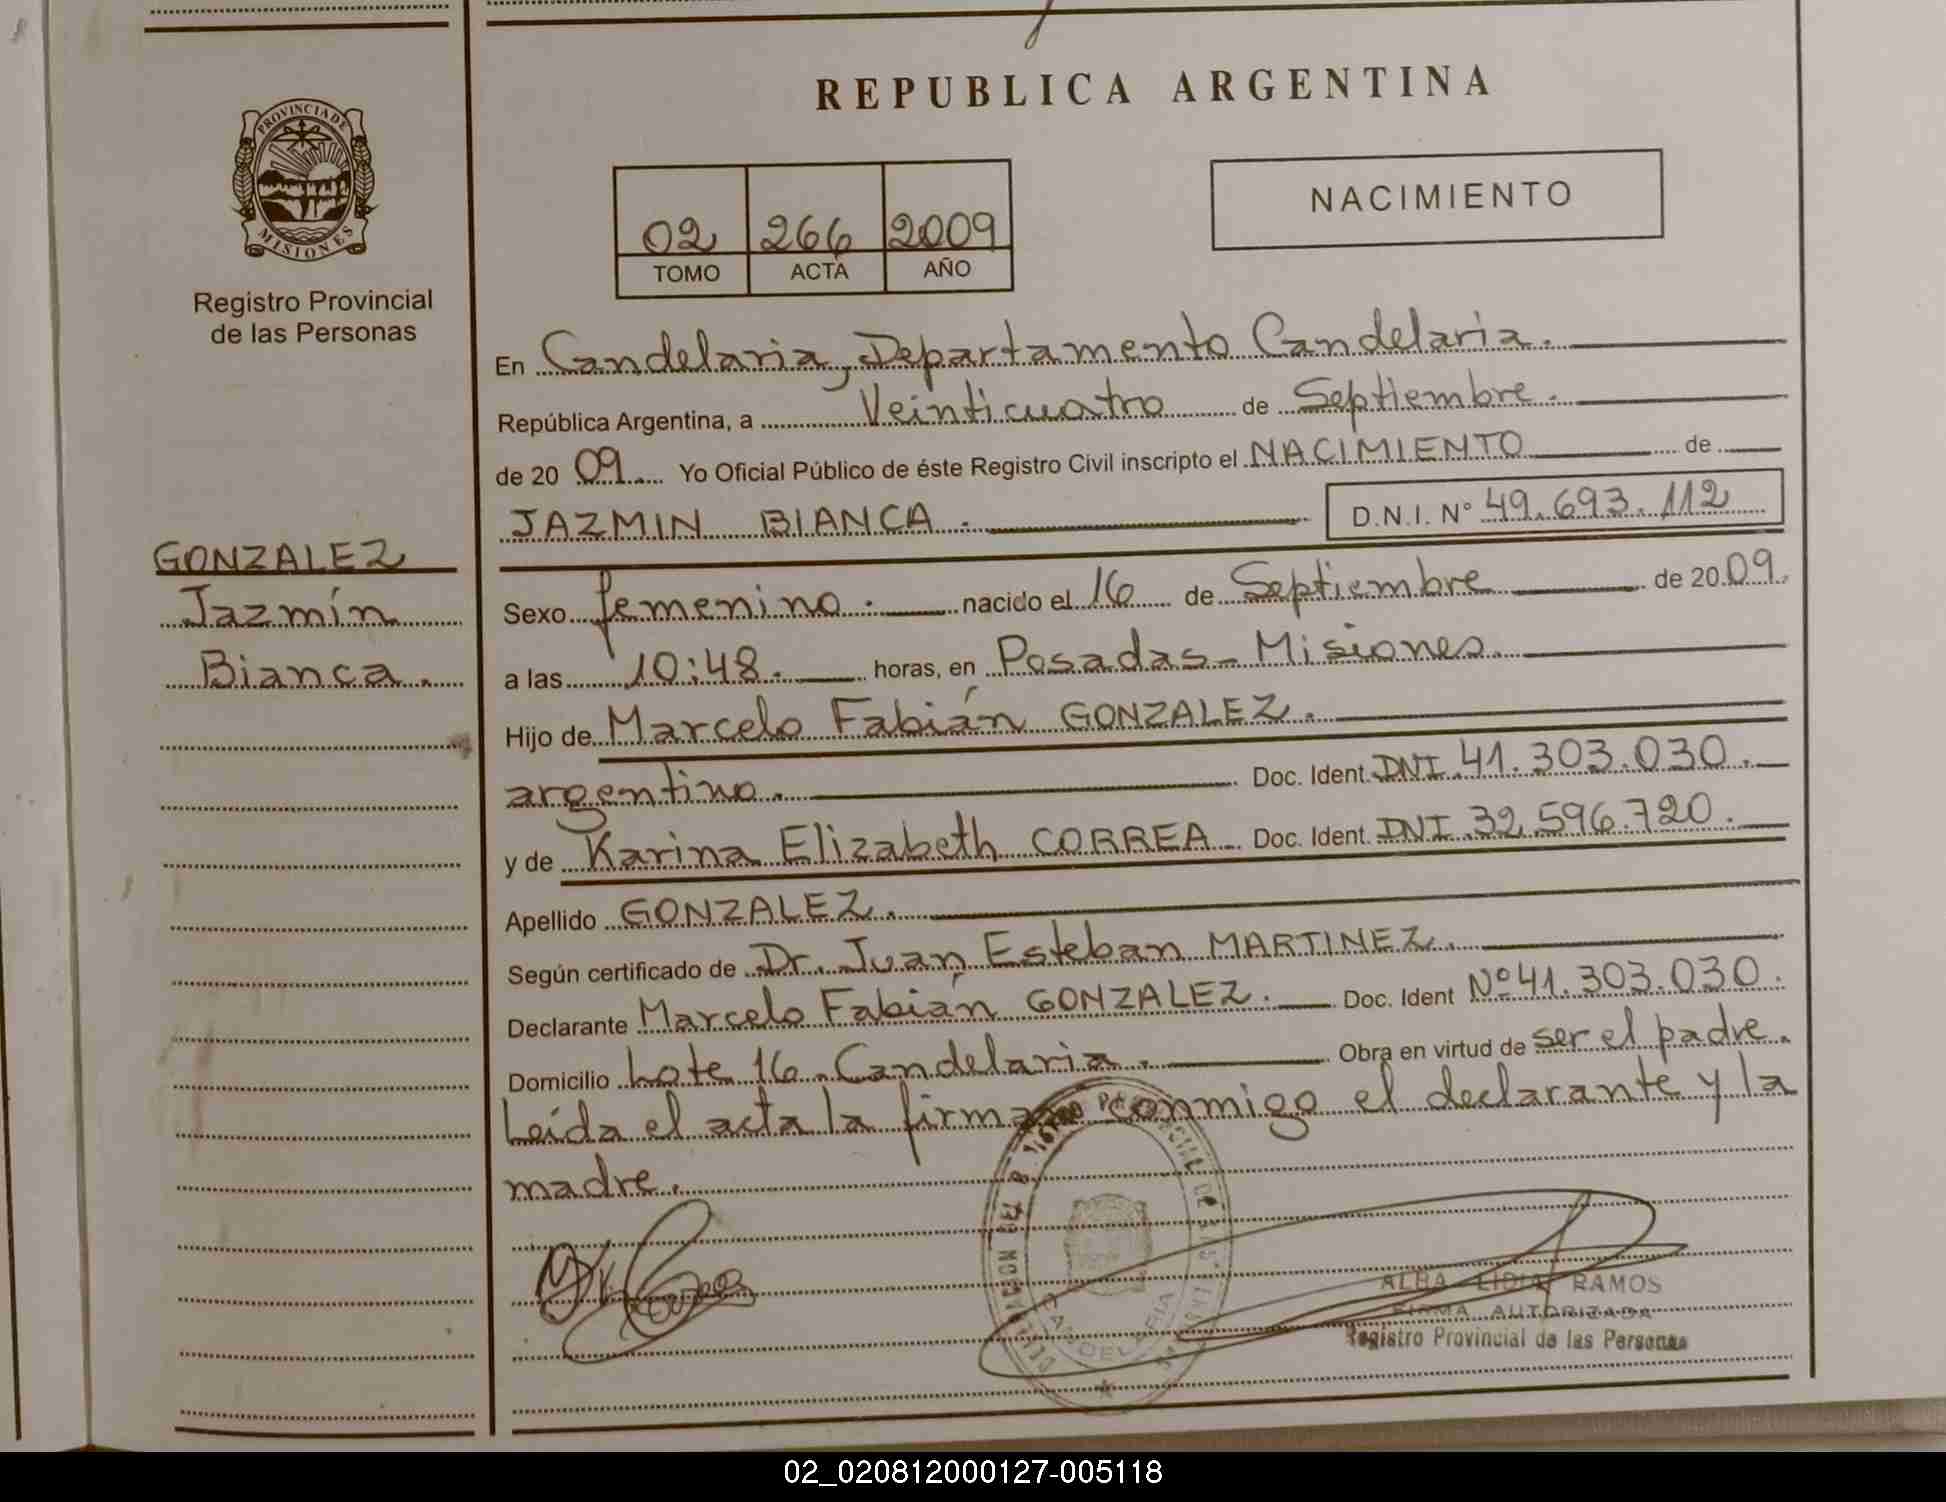 REPUBLICA ARGENTINA
PROVINCIA DE
MISIONES
Registro Provincial
de las Personas
02 266 2009
TOMO ACTA AÑO
NACIMIENTO
En Candelaria, Departamento Candelaria.
República Argentina, a Veinticuatro de Septiembre.
de 20 09 Yo Oficial Público de éste Registro Civil inscripto el NACIMIENTO de
JAZMIN BIANCA. D.N.I. Nº 49.693.112
GONZALEZ
Jazmín
Bianca.
Sexo femenino. nacido el 16 de Septiembre de 20 09.
a las 10:48. horas, en Posadas - Misiones.
Hijo de Marcelo Fabián GONZALEZ.
argentino. Doc. Ident. DNI 41.303.030.
y de Karina Elizabeth CORREA. Doc. Ident. DNI 32.596.720.
Apellido GONZALEZ.
Según certificado de Dr. Juan Esteban MARTINEZ.
Declarante Marcelo Fabián GONZALEZ. Doc. Ident Nº 41.303.030.
Domicilio Lote 16. Candelaria. Obra en virtud de ser el padre.
Leída el acta la firman conmigo el declarante y la
madre.
ALBA LIDIA RAMOS
FIRMA AUTORIZADA
Registro Provincial de las Personas
CANDELARIA
02_020812000127-005118